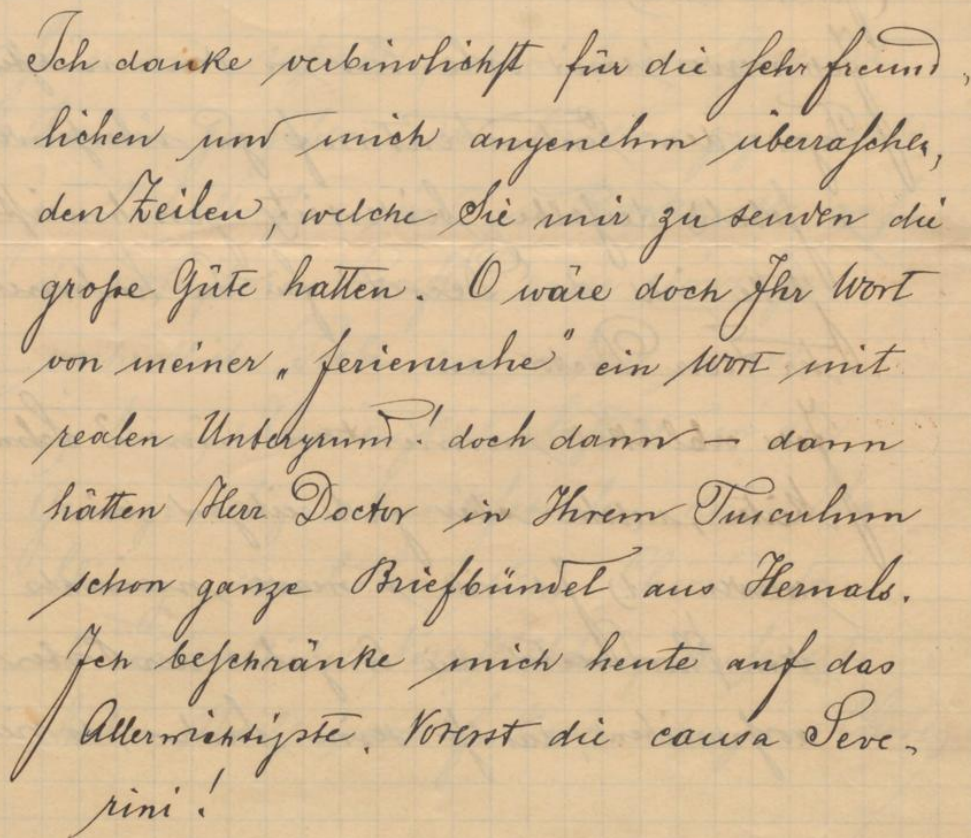 Ich danke verbindlichst für die sehr freund-
lichen und mich angenehm überraschen-
den Zeilen, welche Sie mir zu senden die
große Güte hatten. O wäre doch Ihr Wort
von meiner „Ferienruhe" ein Wort mit
realen Untergrund! doch dann – dann
hätten Herr Doctor in Ihrem Tusculum
schon ganze Briefbündel aus Hernals.
Ich beschränke mich heute auf das
Allerwichtigste. Vorerst die causa Seve-
rini!